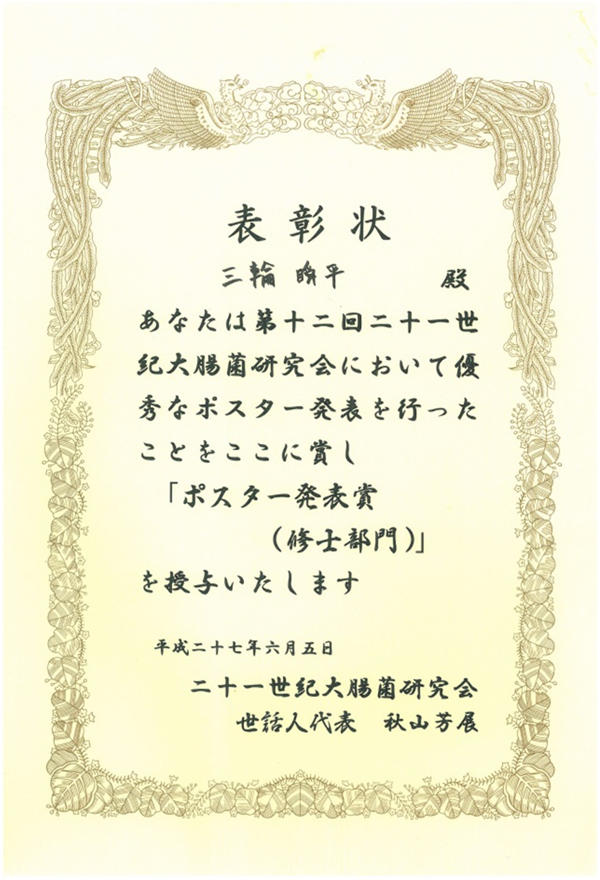 表彰状
三輪 瞬平 殿
あなたは第十二回二十一世
紀大腸菌研究会において優
秀なポスター発表を行った
ことをここに賞し
「ポスター発表賞
(修士部門)」
を授与いたします
平成二十七年六月五日
二十一世紀大腸菌研究会
世話人代表 秋山芳展